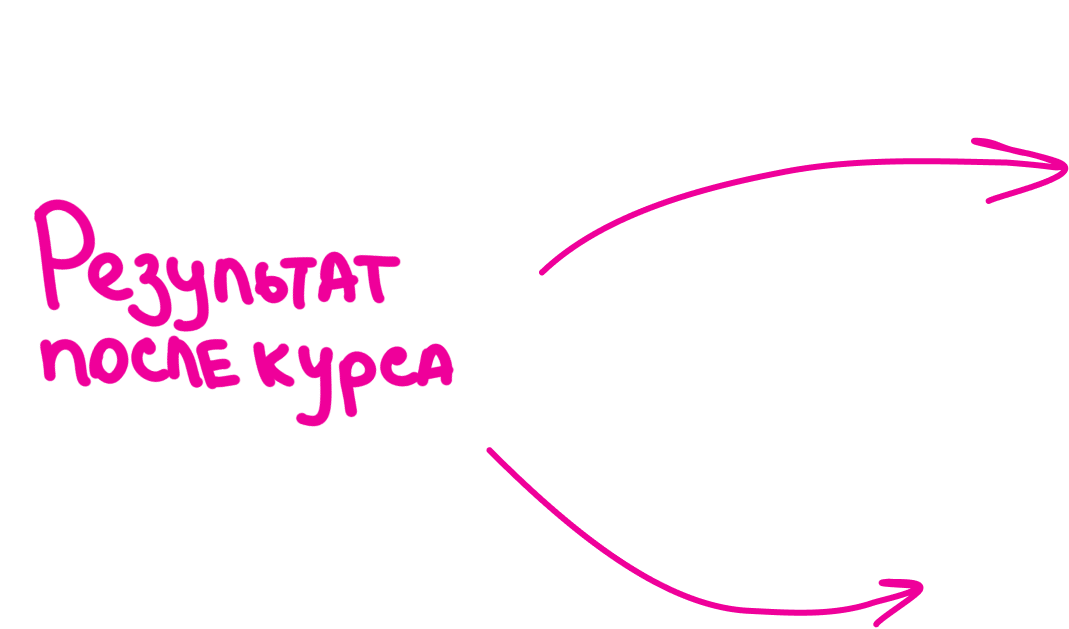 Результат
после курса